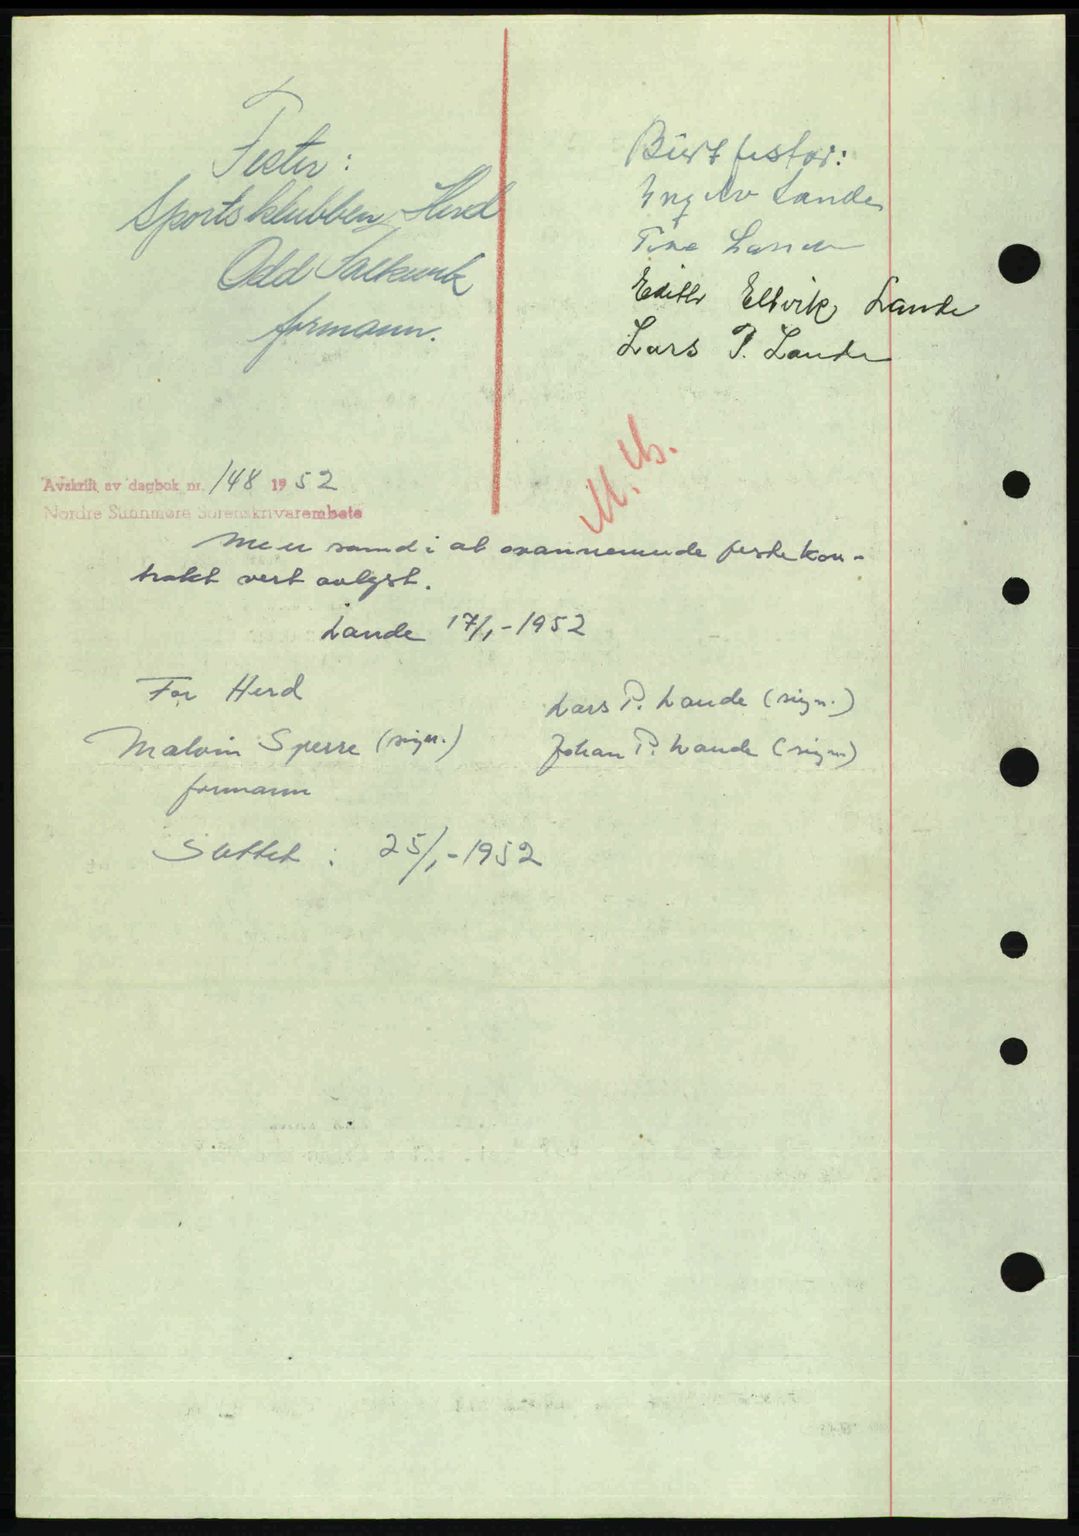 Fester:
Sportsklubben Herd
Odd
formann.
Burtfestar:
Lande
Lande
Edith Ellvik Lande
Lars P. Lande
M.
Avskrift av dagbok nr. 148 1952
Nordre Sunnmøre Sorenskrivarembete
Me er samd i at ovannemnde festekon-
trakt vert avlyst.
Lande 17/1-1952
For Herd
Malvin Sperre (sign.)
formann
Lars P. Lande (sign.)
Johan P. Lande (sign)
Slettet : 25/1-1952